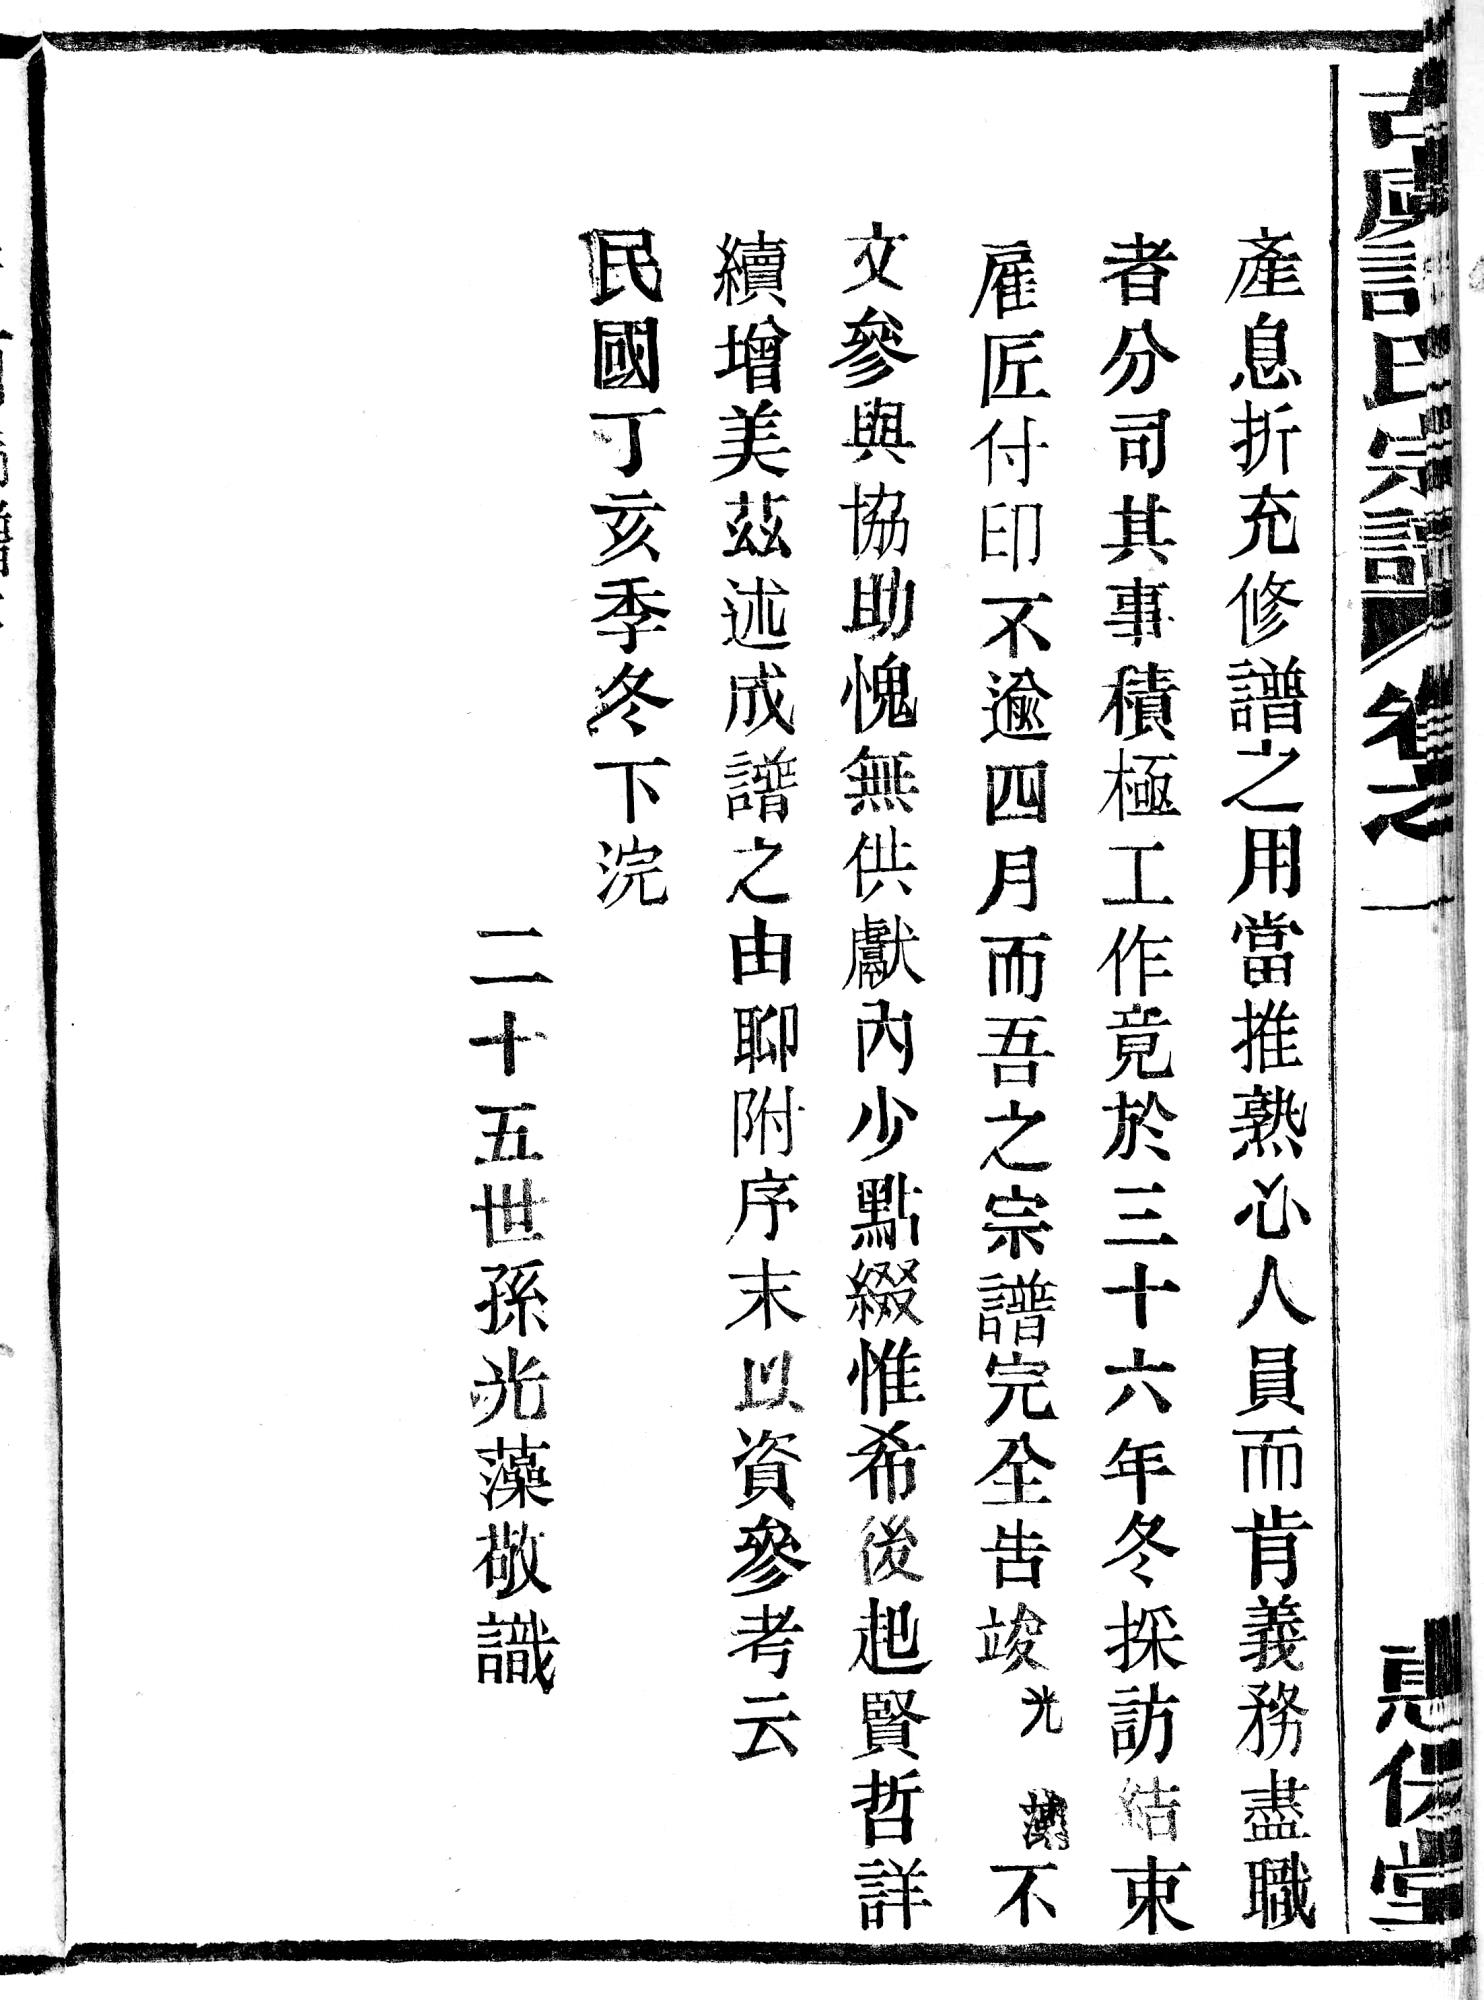 產息折充修譜之用當推熟心人員而肯義務盡職
者分司其事積極工作竟於三十六年冬採訪結束
雇匠付印不逾四月而吾之宗譜完全告竣光藻不
文參與協助愧無供獻內少點綴惟希後起賢哲詳
續增美茲述成譜之由聊附序末以資參考云
民國丁亥季冬下浣
二十五世孫光藻敬識